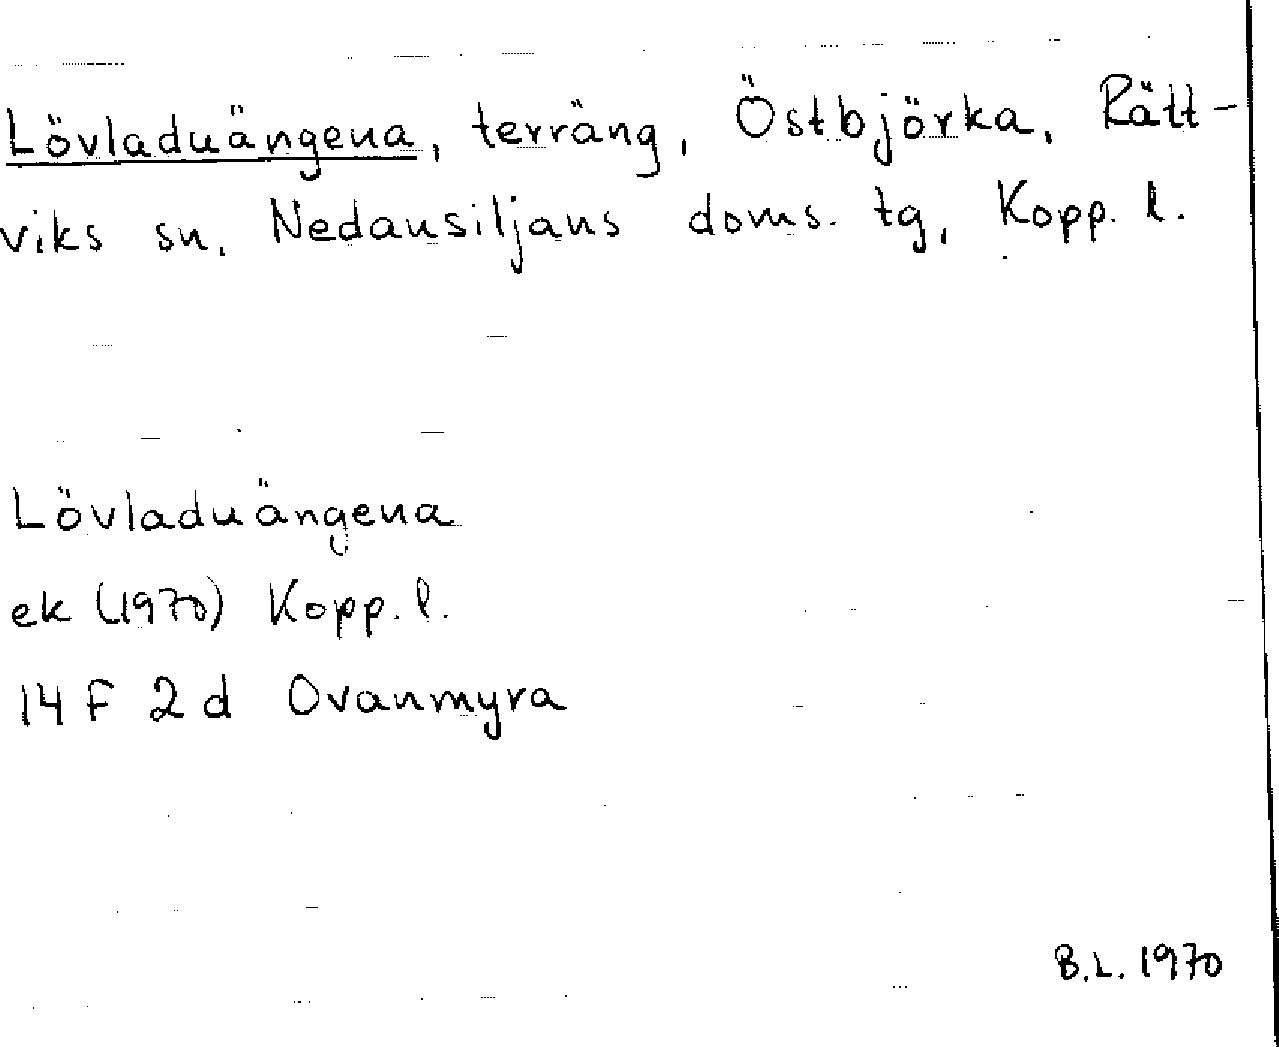 Lövladuängena, terräng, Östbjörka, Rätt-
viks sn, Nedansiljans doms. tg, Kopp. l.
Lövladuängena
ek (1970) Kopp. l.
14 F 2 d Ovanmyra
B.L. 1970